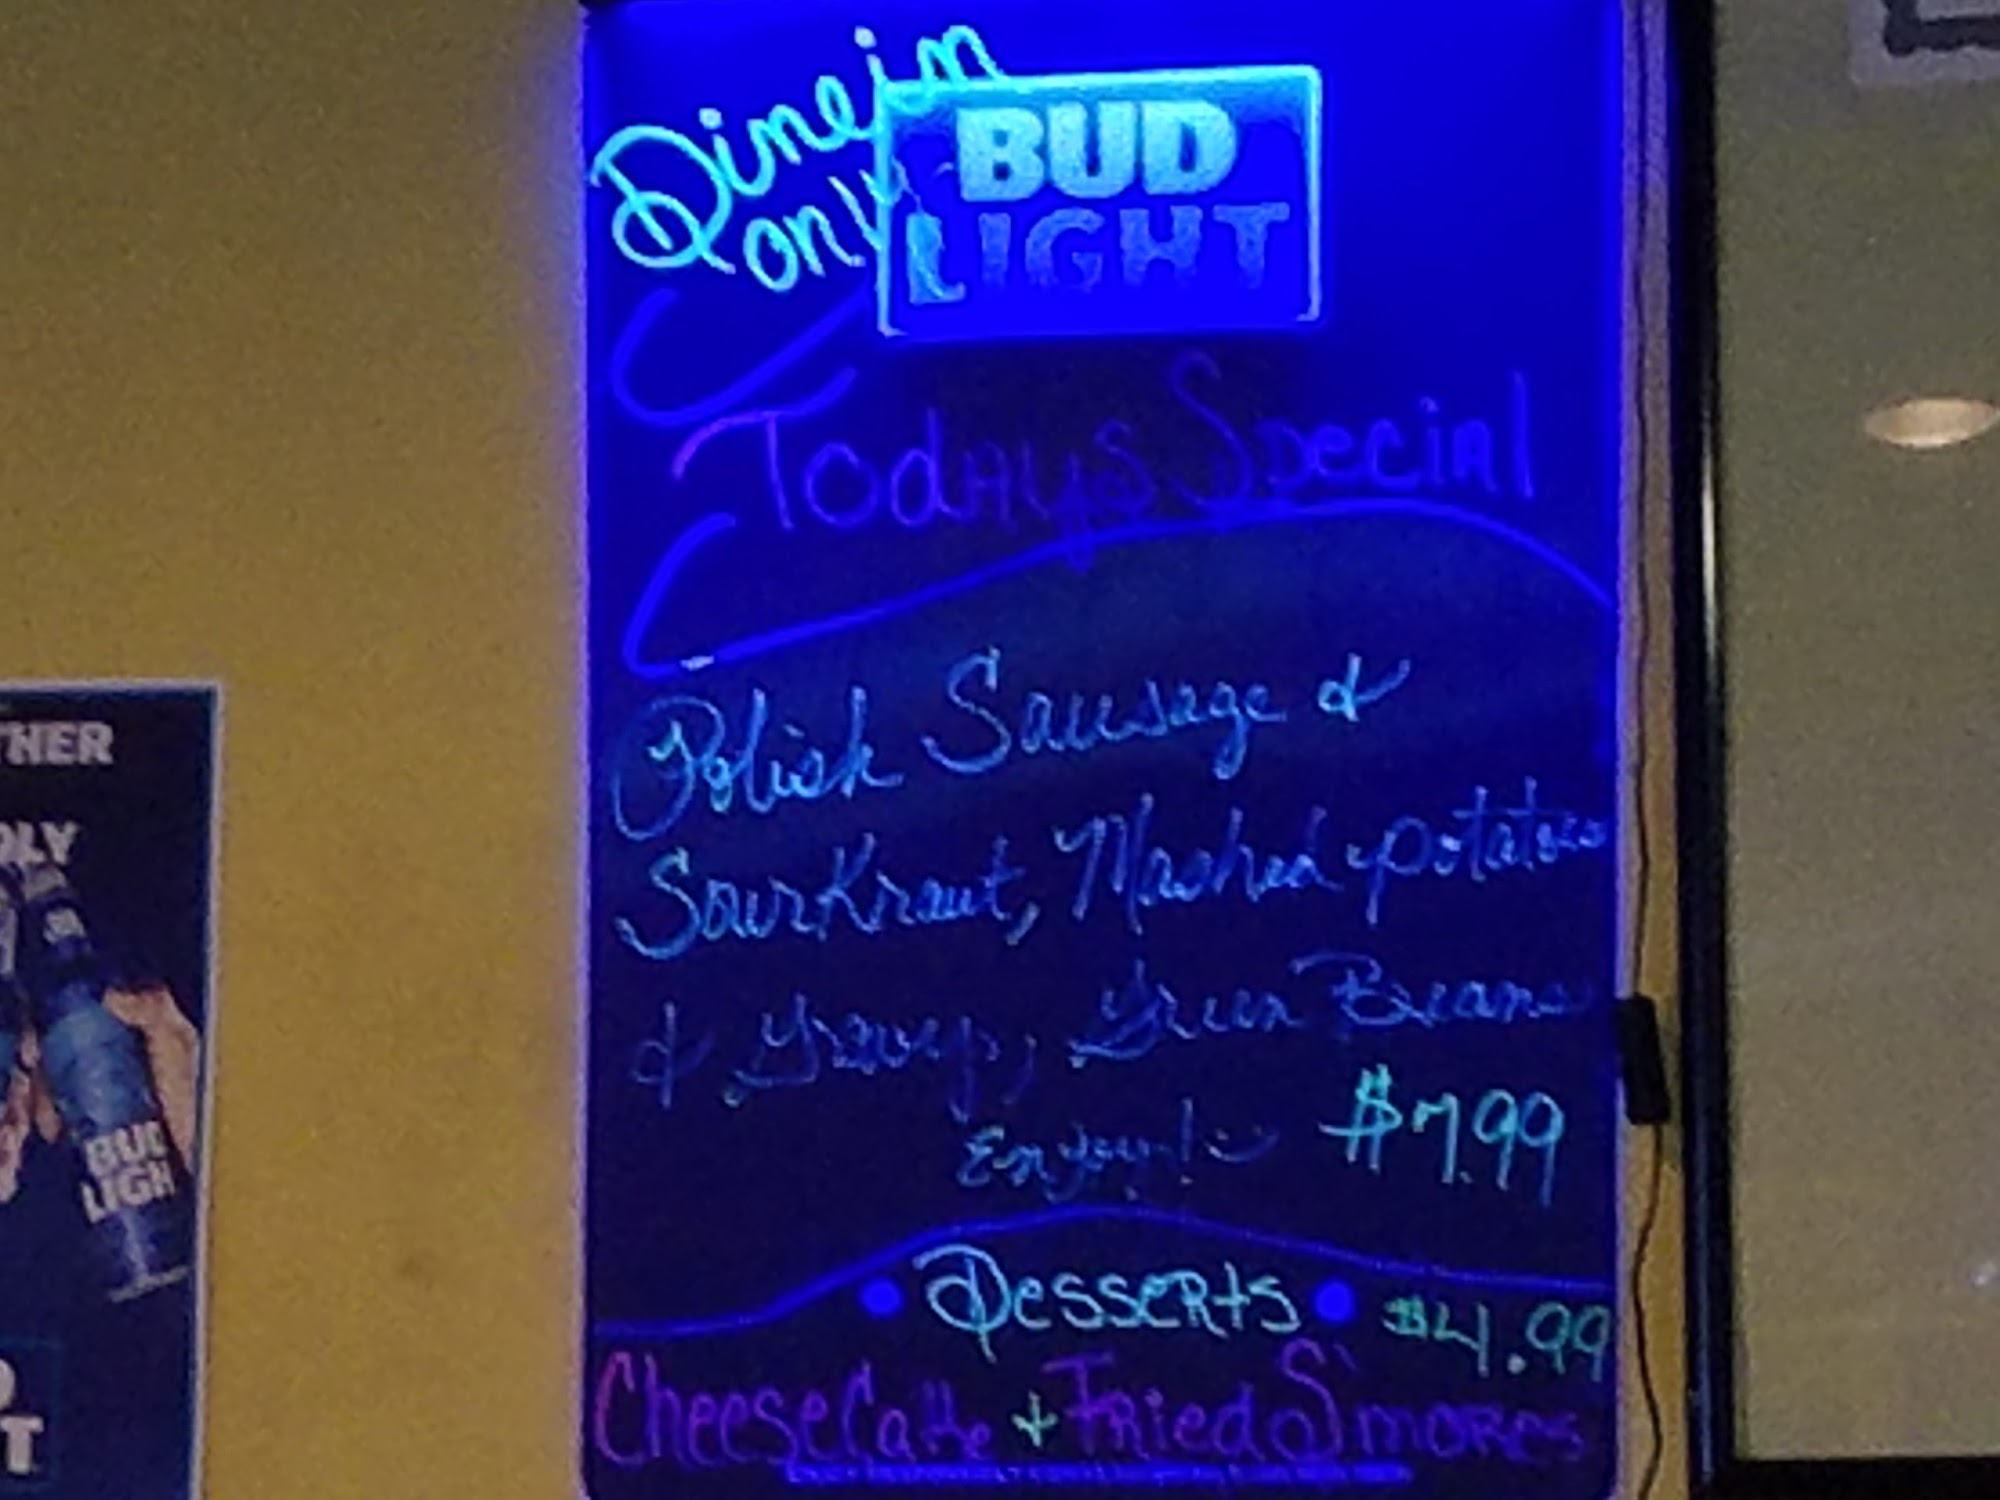 Dine in
only
BUD
LIGHT
Todays Special
Polish Sausage &
SourKraut, Mashed potatoes
& Gravy, Green Beans
Enjoy! $7.99
Desserts $4.99
CheeseCake + Fried S'mores
THER
BUD
LIGH